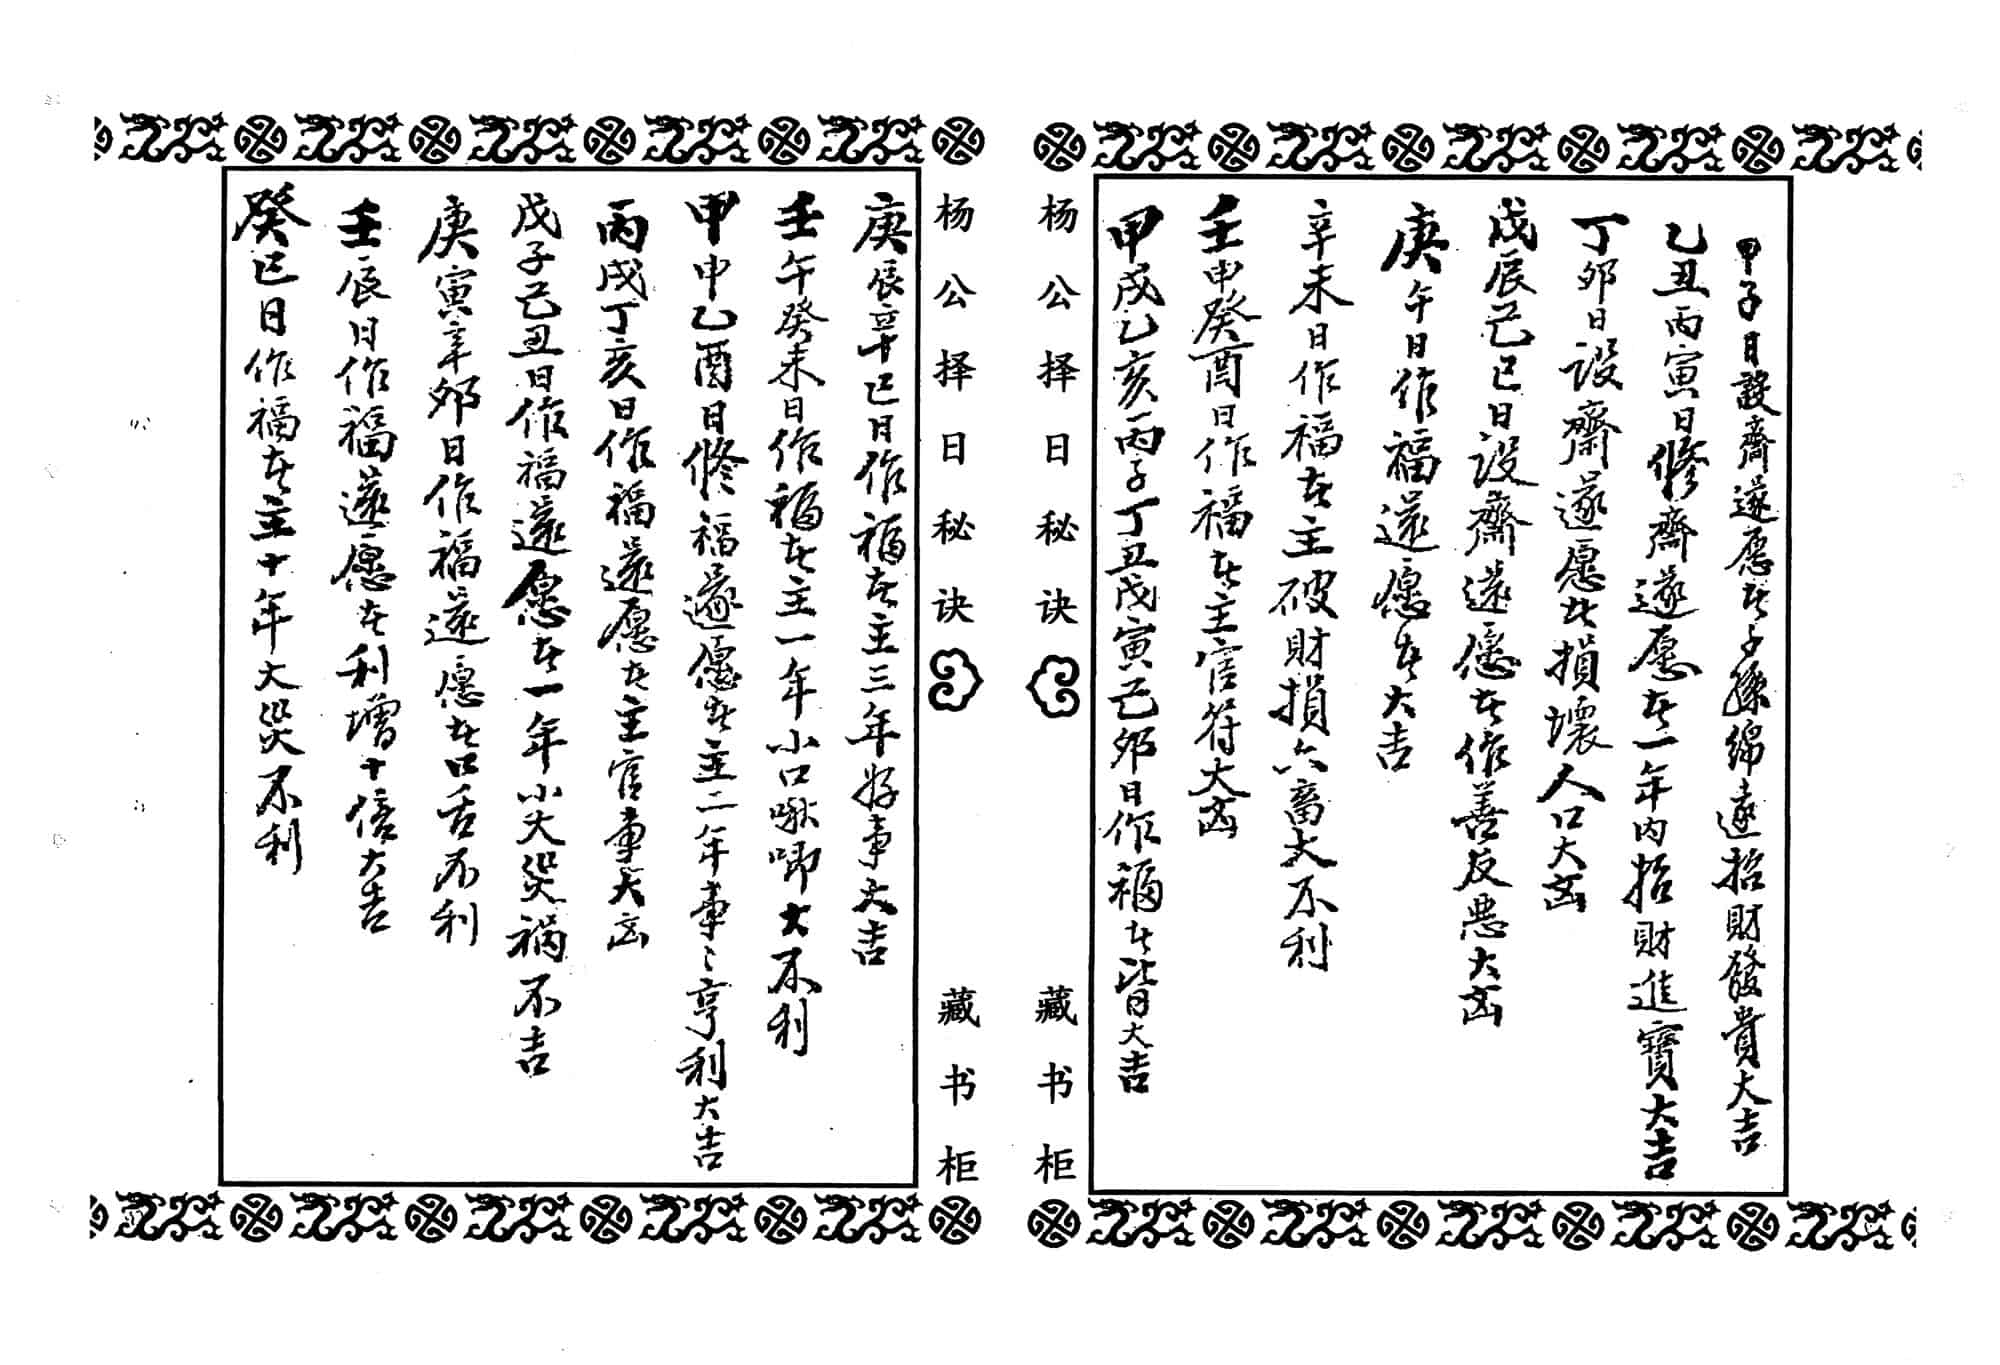 甲子日設齋還愿者子孫綿遠招財發貴大吉
乙丑丙寅日修齋還愿者一年内招財進寶大吉
丁夘日設齋還愿者損壞人口大凶
戊辰己巳日設齋還愿者作善反悪大凶
庚午日作福還愿者大吉
辛未日作福者主破財損六畜大不利
壬申癸酉日作福者主官符大凶
甲戌乙亥丙子丁丑戊寅己夘日作福者皆大吉
杨公择日秘诀
藏书柜
杨公择日秘诀
藏书柜
庚辰辛巳日作福者主三年好事大吉
壬午癸未日作福者主一年小口啾唧大不利
甲申乙酉日修福還愿者主二年事〻亨利大吉
丙戌丁亥日作福還愿者主官事大凶
戊子己丑日作福還愿者一年小火災禍不吉
庚寅辛夘日作福還愿者口舌不利
壬辰日作福還愿者利增十倍大吉
癸巳日作福者主十年大災不利